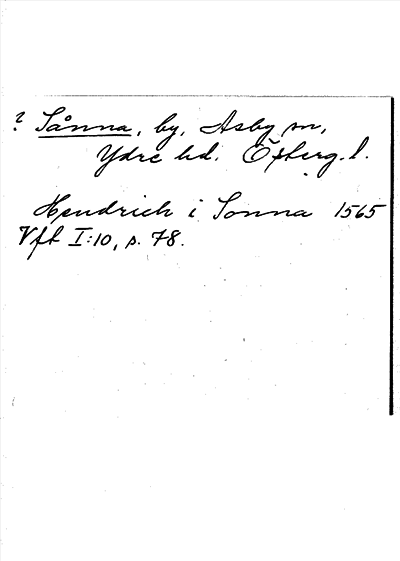 ? Sånna, by, Asby sn,
Ydre hd. Östergl.
Hendrich i Sonna 1565
Vfl I:10, s. 78.